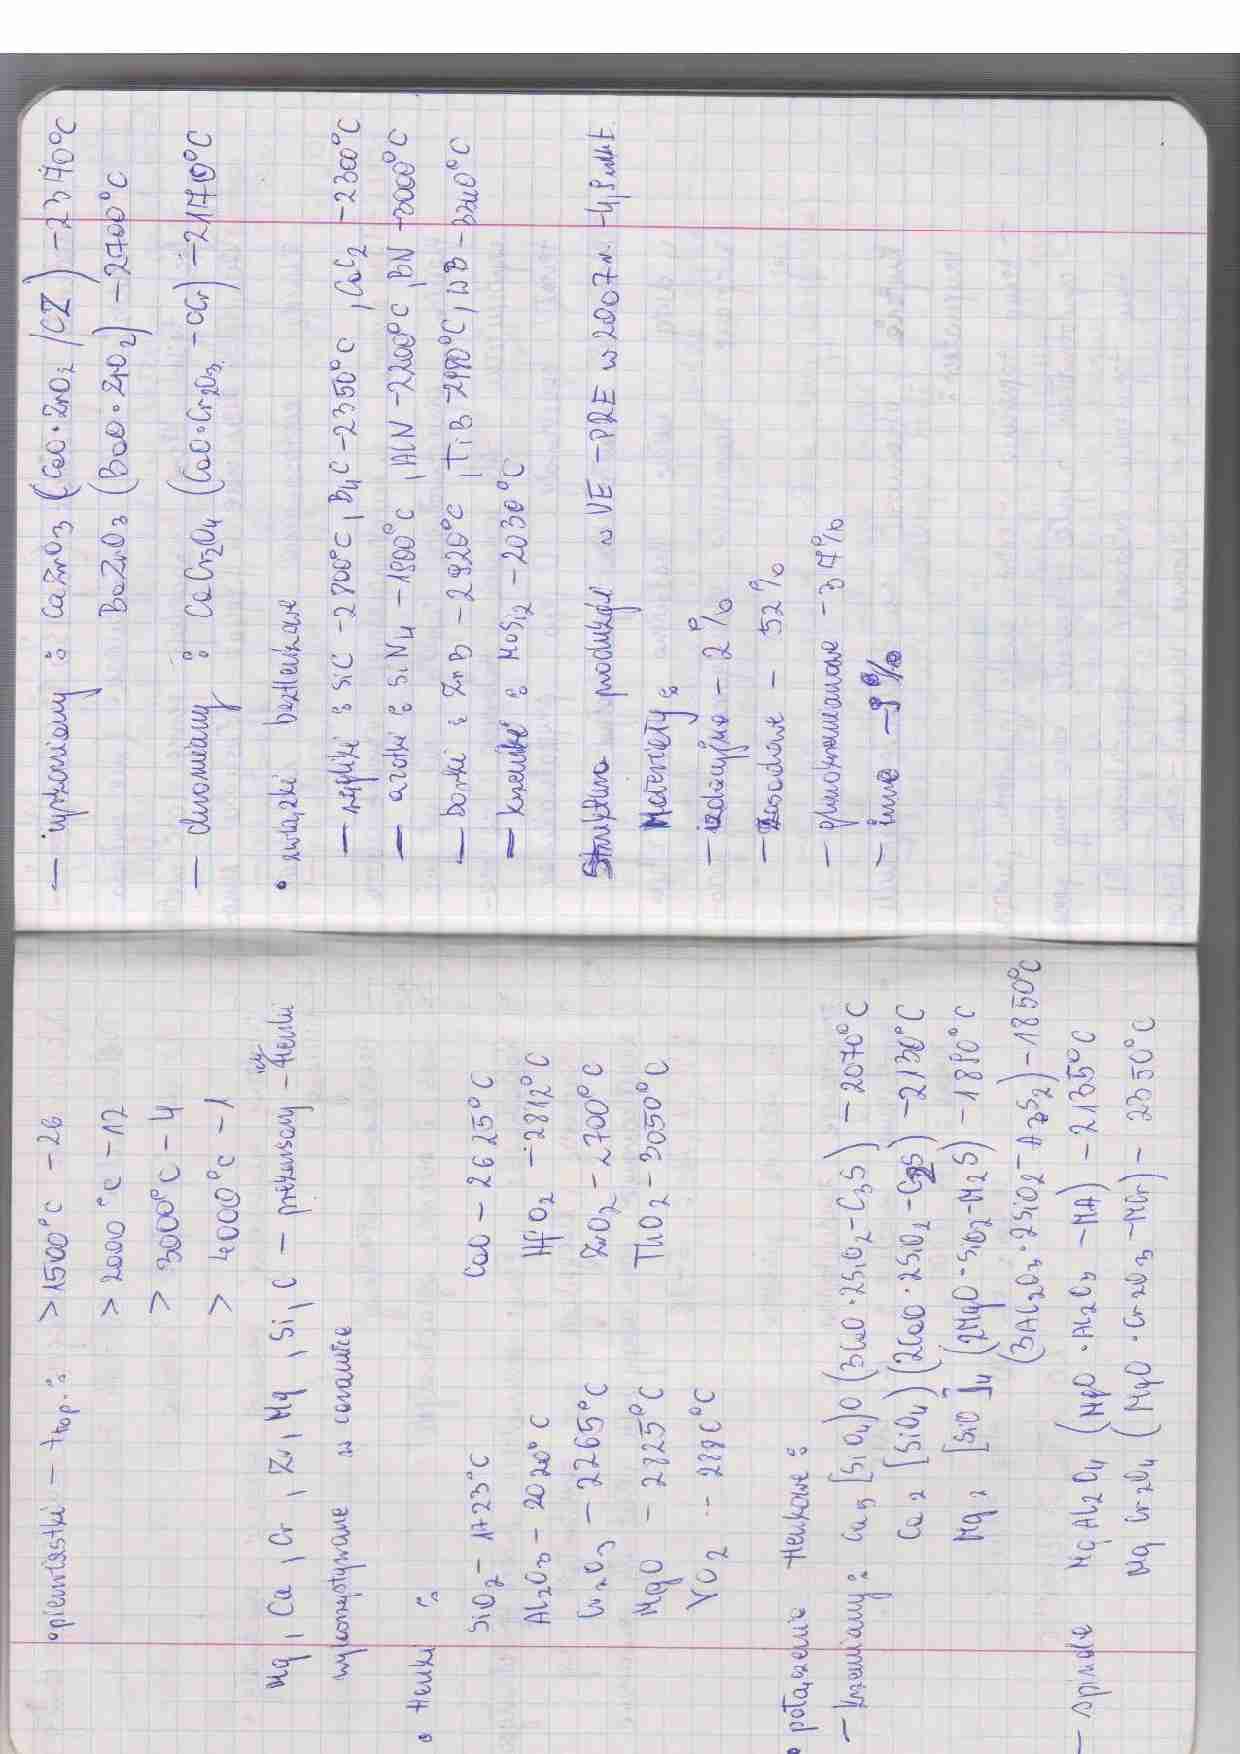 •pierwiastki – ttop. : >1500°C – 26
> 2000 °C – 12
> 3000°C – 4
> 4000°C – 1
Mg, Ca, Cr, Zr, Mg, Si, C – przewarzany – tlenki
wykorzystywane w ceramice
• tlenki :
SiO2 – 1723°C CaO – 2625°C
Al2O3 – 2020°C HfO2 – 2812°C
Cr2O3 – 2265°C ZrO2 – 2700°C
MgO – 2825°C ThO2 – 3050°C
VO2 –
• połączenia tlenkowe :
– krzemiany : Ca3 [SiO4]O (3CaO·2SiO2–C3S) – 2070°C
Ca2 [SiO4] (2CaO·2SiO2–C2S) – 2130°C
Mg2 [SiO]4 (2MgO·SiO2–M2S) – 1890°C
(3Al2O3·2SiO2–A3S2) – 1850°C
– spinele MgAl2O4 (MgO·Al2O3 –MA) – 2135°C
MgCr2O4 (MgO·Cr2O3 –MCr) – 2350°C
– cyrkoniany : CaZrO3 (CaO·ZrO2 /CZ) – 2370°C
BaZrO3 (BaO·ZrO2) – 2700°C
– chromiany : CaCr2O4 (CaO·Cr2O3 –CCr) – 2170°C
• związki beztlenkowe
– węgliki : SiC – 2700°C, B4C – 2350°C, CaC2 – 2300°C
– azotki : SiN4 – 1900°C, AlN – 2200°C, BN – 3000°C
– borki : ZrB – 2920°C, TiB – 2980°C, WB –
– krzemki : MoSi2 – 2030°C
Struktura produkcji w UE – PRE w 2007r. – 4,8 mln t.
Materiały :
– izolacyjne – 2%
– zasadowe – 52%
– glinokrzemianowe – 37%
– inne – 9%